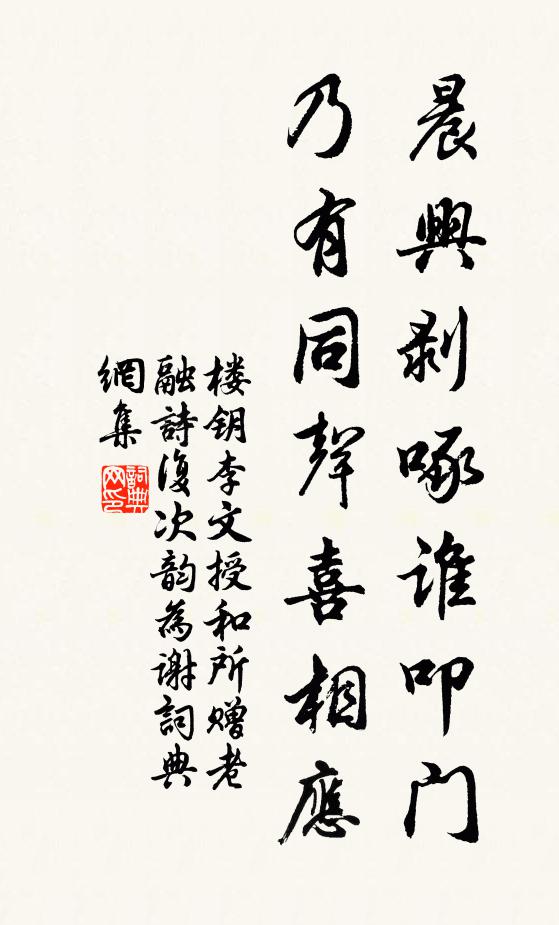 晨興剥啄谁叩门
乃有同聲喜相應
楼钥李文授和所赠老
融詩復次韵為谢詞典
網集
詞典
网印